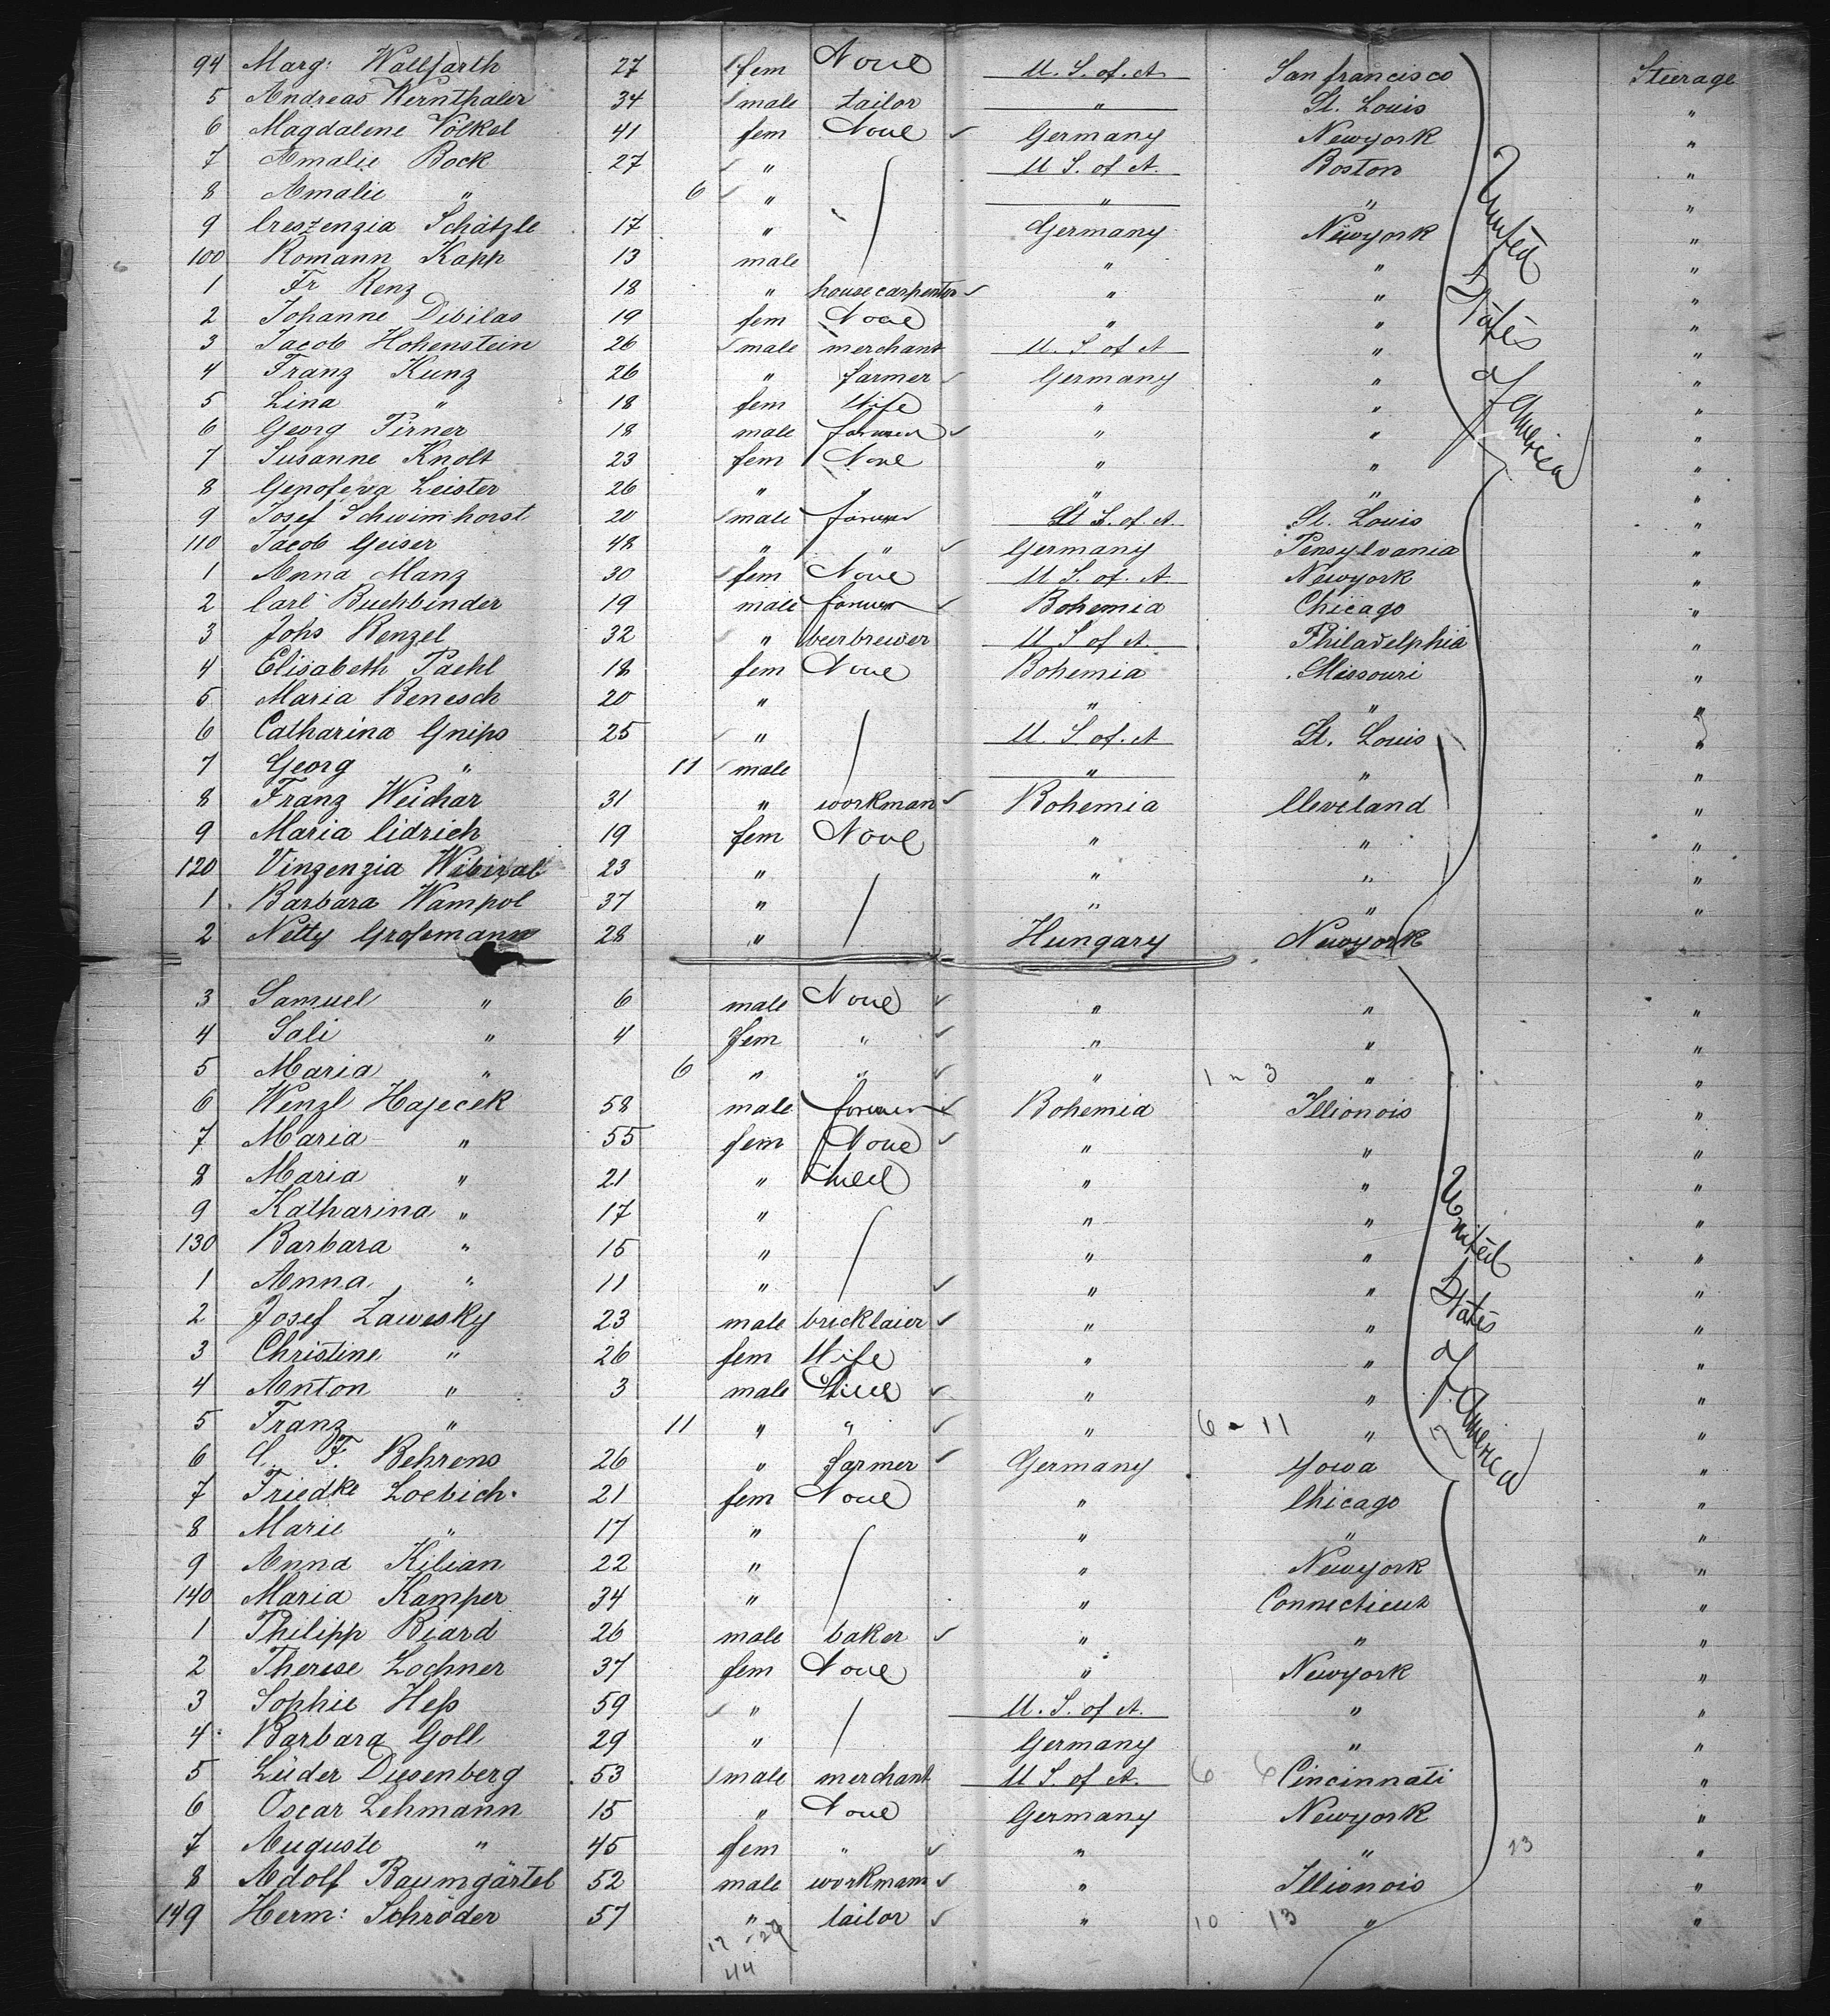 94 Marg: Wallfarth 27 fem None U. S. of. A. San francisco Steerage
5 Andreas Wernthaler 34 male tailor " St. Louis "
6 Magdalene Völkel 41 fem None Germany Newyork "
7 Amalie Bock 27 " U S. of A. Boston "
8 Amalie " 6 " " " "
9 Creszenzia Schätzle 17 " Germany Newyork "
100 Romann Kapp 13 male " " "
1 Fr Renz 18 " house carpenter " " "
2 Johanne Dibilas 19 fem None " " "
3 Jacob Hohenstein 26 male merchant U. S of A " "
4 Franz Kunz 26 " farmer Germany " "
5 Lina " 18 fem Wife " " "
6 Georg Pirner 18 male farmer " " "
7 Susanne Knolt 23 fem None " " "
8 Genofeva Leister 26 " " " "
9 Josef Schwimhorst 20 male farmer U S. of. A. St. Louis "
110 Jacob Geiser 48 " " Germany Pensylvania "
1 Anna Manz 30 fem None U. S. of. A. Newyork "
2 Carl Buchbinder 19 male farmer Bohemia Chicago "
3 Johs Renzel 32 " beerbrewer U. S of A. Philadelphia "
4 Elisabeth Paehl 18 fem None Bohemia Missouri "
5 Maria Benesch 20 " " " "
6 Catharina Gnips 25 " U. S. of. A St. Louis "
7 Georg " 11 male " " "
8 Franz Weichar 31 " workman Bohemia Cleveland "
9 Maria Cidrich 19 fem None " " "
120 Vinzenzia Wibiral 23 " " " "
1 Barbara Wampol 37 " " " "
2 Netty Grossmann 28 " Hungary Newyork
3 Samuel " 6 male None " " "
4 Sali " 4 fem " " " "
5 Maria " 6 " " " 1 " 3 " "
6 Wenzl Hajecek 58 male farmer Bohemia Illionois "
7 Maria " 55 fem None " " "
8 Maria " 21 " child " " "
9 Katharina " 17 " " " "
130 Barbara " 15 " " " "
1 Anna " 11 " " " "
2 Josef Zawesky 23 male bricklaier " " "
3 Christine " 26 fem Wife " " "
4 Anton " 3 male " " "
5 Franz " 11 " " " 6 - 11 " "
6 F. Behrens 26 " farmer Germany Yowa "
7 Friedke Loebich 21 fem None " Chicago "
8 Marie " 17 " " " "
9 Anna Kilian 22 " " Newyork "
140 Maria Kamper 34 " " Connecticut "
1 Philipp Biard 26 male baker " " "
2 Therese Lochner 37 fem None " Newyork "
3 Sophie Heß 59 " U. S. of A. " "
4 Barbara Goll 29 " Germany " "
5 Lüder Duesenberg 53 male merchant U S. of A. 6 6 Cincinnati "
6 Oscar Lehmann 15 " None Germany Newyork "
7 Auguste " 45 fem " " " 23 "
8 Adolf Baumgärtel 52 male workmann " Illionois "
149 Herm: Schröder 57 " tailor " 10 13 " "
44
United States of America
United States of America